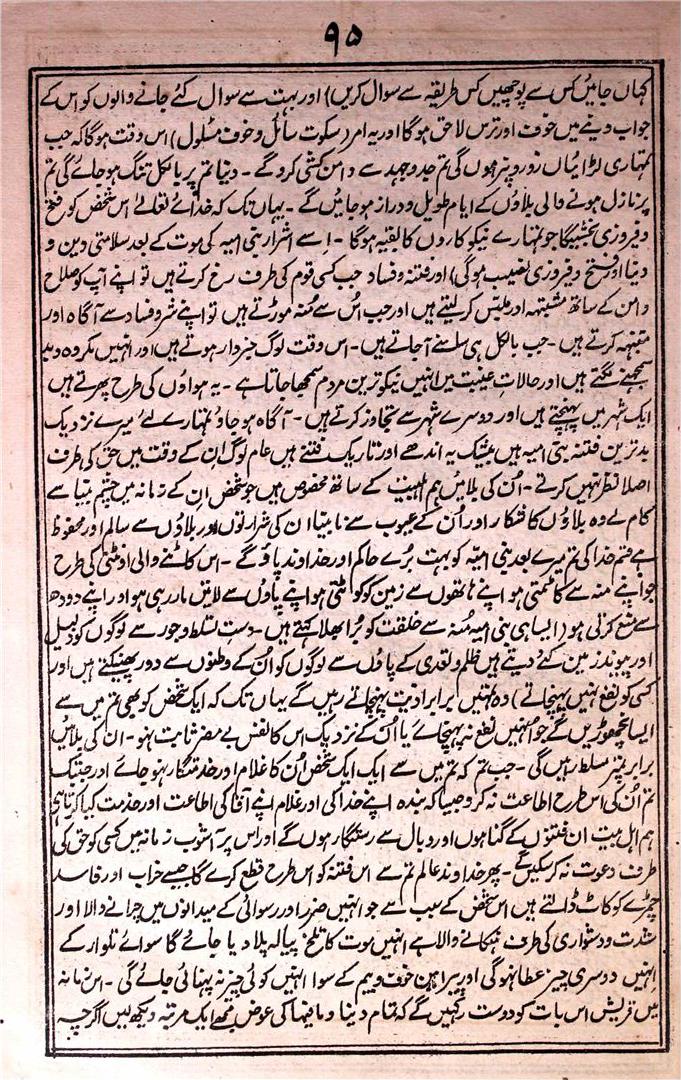 ۹۵
کہاں جائیں کس سے پوچھیں کس طریقہ سے سوال کریں) اور بہت سے سوال کئے جانے والوں کو اس کے
جواب دینے میں خوف اور ترس لاحق ہوگا اور یہ امر (سکوت سائل و خوف مسئول) اس وقت ہوگا کہ جب
تمہاری لڑائیاں زور و پر ہوں گی تم جد و جہد سے دامن کشی کرو گے ۔ دنیا تم پر بالکل تنگ ہو جائے گی تم
پر نازل ہونے والی بلاؤں کے ایام طویل و دراز ہو جائیں گے ۔ یہاں تک کہ خدائے تعالےٰ اس شخص کو فتح
و فیروزی بخشیگا جو تمہارے نیکو کاروں کا بقیہ ہوگا ۔ اسے اشرار بنی امیہ کی موت کے بعد سلامتی دین و
دنیا اور فتح و فیروزی نصیب ہوگی) اور فتنہ و فساد جب کسی قوم کی طرف رخ کرتے ہیں تو اپنے آپ کو صلاح
و امن کے ساتھ مشتبہ اور ملتبس کر لیتے ہیں اور جب اس سے منہ موڑتے ہیں تو اپنے شر و فساد سے آگاہ اور
متنبہ کرتے ہیں ۔ جب بالکل ہی سامنے آجاتے ہیں ۔ اس وقت لوگ خبردار ہوتے ہیں اور انہیں مکروہ و بد
سمجھنے لگتے ہیں اور حالات غیبت میں انہیں نیکو ترین مردم سمجھا جاتا ہے ۔ یہ ہواؤں کی طرح پھرتے ہیں
ایک شہر میں پہنچتے ہیں اور دوسرے شہر سے تجاوز کرتے ہیں ۔ آگاہ ہو جاؤ تمہارے لئے میرے نزدیک
بدترین فتنہ بنی امیہ ہیں بیشک یہ اندھے اور تاریک فتنے ہیں عام لوگ ان کے وقت میں حق کی طرف
اصلا نظر نہیں کرتے ۔ ان کی بلائیں ہم اہلبیت کے ساتھ مخصوص ہیں جو شخص ان کے زمانہ میں چشم بینا سے
کام لے وہ بلاؤں کا شکار اور ان کے عیوب سے نابینا ان کی شرارتوں اور بلاؤں سے سالم اور محفوظ
ہے قسم خدا کی تم میرے بعد بنی امیہ کو بہت برے حاکم اور خداوند پاؤ گے ۔ اس کاٹنے والی اونٹنی کی طرح
جو اپنے منہ سے کاٹتی ہو اپنے ہاتھوں سے زمین کو کوٹتی ہو اپنے پاؤں سے لاتیں مار رہی ہو اور اپنے دودھ
سے منع کرتی ہو (ایسا ہی بنی امیہ منہ سے خلقت کو برا بھلا کہتے ہیں ۔ دست تسلط و جور سے لوگوں کو ذلیل
اور پیوند زمین کئے دیتے ہیں ظلم و تعدی کے پاؤں سے لوگوں کو ان کے وطنوں سے دور پھینکتے ہیں اور
کسی کو نفع نہیں پہنچاتے) وہ تمہیں برابر اذیت پہنچاتے رہیں گے یہاں تک کہ ایک شخص کو بھی تم میں سے
ایسا نچھوڑیں گے جو انہیں نفع نہ پہنچائے یا ان کے نزدیک اس کا نفس بے مضر ثابت نہو ۔ ان کی بلائیں
برابر تمپر مسلط رہیں گی ۔ جب تم کہ تم میں سے ایک ایک شخص ان کا غلام اور خدمتگار نہو جائے اور جبتک
تم ان کی اس طرح اطاعت نہ کرو جیسا کہ بندہ اپنے خدا کی اور غلام اپنے آقا کی اطاعت اور خدمت کیا کرتا ہے
ہم اہل بیت ان فتنوں کے گناہوں اور وبال سے رستگار ہوں گے اور اس پر آشوب زمانہ میں کسی کو حق کی
طرف دعوت نہ کر سکیں گے ۔ پھر خداوند عالم تم سے اس فتنہ کو اس طرح قطع کرے گا جیسے خراب اور فاسد
چمڑے کو کاٹ ڈالتے ہیں اس شخص کے سبب سے جو انہیں ضرر اور رسوائی کے میدانوں میں چرانے والا اور
شدت و دشواری کی طرف ہنکانے والا ہے انہیں موت کا تلخ پیالہ پلا دیا جائے گا سوائے تلوار کے
انہیں دوسری چیز عطا نہوگی اور پیراہن خوف و بیم کے سوا انہیں کوئی چیز نہ پہنائی جائے گی ۔ اس زمانہ
میں قریش اس بات کو دوست رکھیں گے کہ تمام دنیا و مافیہا کی عوض مجھے ایک مرتبہ دیکھ لیں اگرچہ